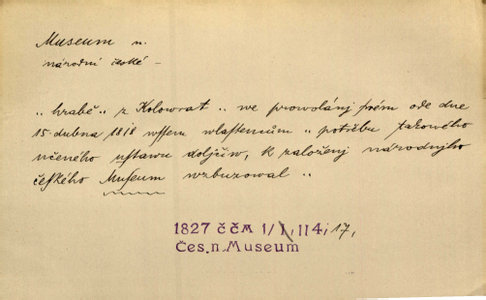 Museum n.
národní české –
„ hrabě „ z Kolowrat „ we prowolánj swém ode dne
15 dubna 1818 wssem wlastencům „ potřebu takowého
učeného ustawu doljčiw, k založenj národnjho
českého Museum wzbuzowal „
1827 ČČM 1/1, 114, 17,
Čes. n. Museum